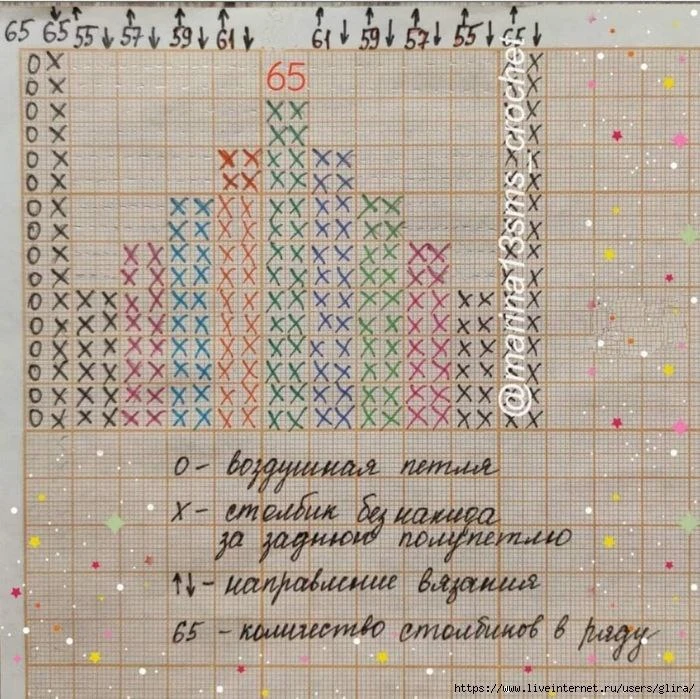 65 65 55 57 59 61 61 59 57 55 65
65
O - воздушная петля
X - столбик без накида
за заднюю полупетлю
↑↓ - направление вязания
65 - количество столбиков в ряду
@marina13sms_crochet
https://www.liveinternet.ru/users/glira/